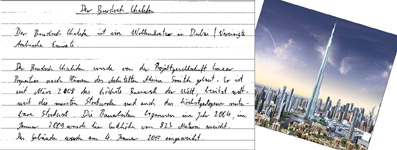 Der Burdsch Chalifa
Der Burdsch Chalifa ist ein Wolkenkratzer in Dubai / Vereinigte
Arabische Emirate
Der Burdsch Chalifa wurde von der Projektgesellschaft Emaar
Properties nach Plänen des Architekten Adrian Smith gebaut. Er ist
seit März 2008 das höchste Bauwerk der Welt, besitzt welt-
weit die meisten Stockwerke und auch das höchstgelegene nutz-
bare Stockwerk. Die Bauarbeiten begannen im Jahr 2004, im
Januar 2009 wurde die Endhöhe von 828 Metern erreicht.
Das Gebäude wurde am 4. Januar 2010 eingeweiht.